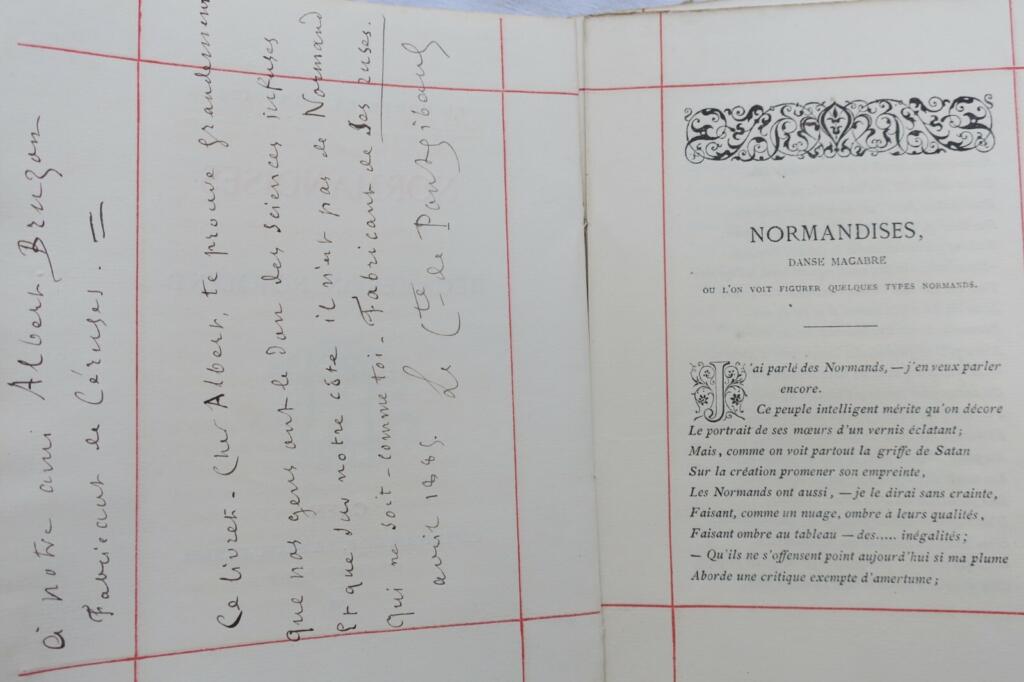 à notre ami Albert Bruzon
Fabricant de Céruses.
Ce livret - Cher Albert, te prouve grandement
Que nos gens ont le don des sciences infuses
Et que sur notre côte il n'est pas de Normand
Qui ne soit - comme toi - Fabricant de ses ruses.
Le Cte de Pontgibaud
avril 1885.
NORMANDISES,
DANSE MACABRE
OU L'ON VOIT FIGURER QUELQUES TYPES NORMANDS.
J'ai parlé des Normands, — j'en veux parler
encore.
Ce peuple intelligent mérite qu'on décore
Le portrait de ses mœurs d'un vernis éclatant ;
Mais, comme on voit partout la griffe de Satan
Sur la création promener son empreinte,
Les Normands ont aussi, — je le dirai sans crainte,
Faisant, comme un nuage, ombre à leurs qualités,
Faisant ombre au tableau — des..... inégalités ;
— Qu'ils ne s'offensent point aujourd'hui si ma plume
Aborde une critique exempte d'amertume ;